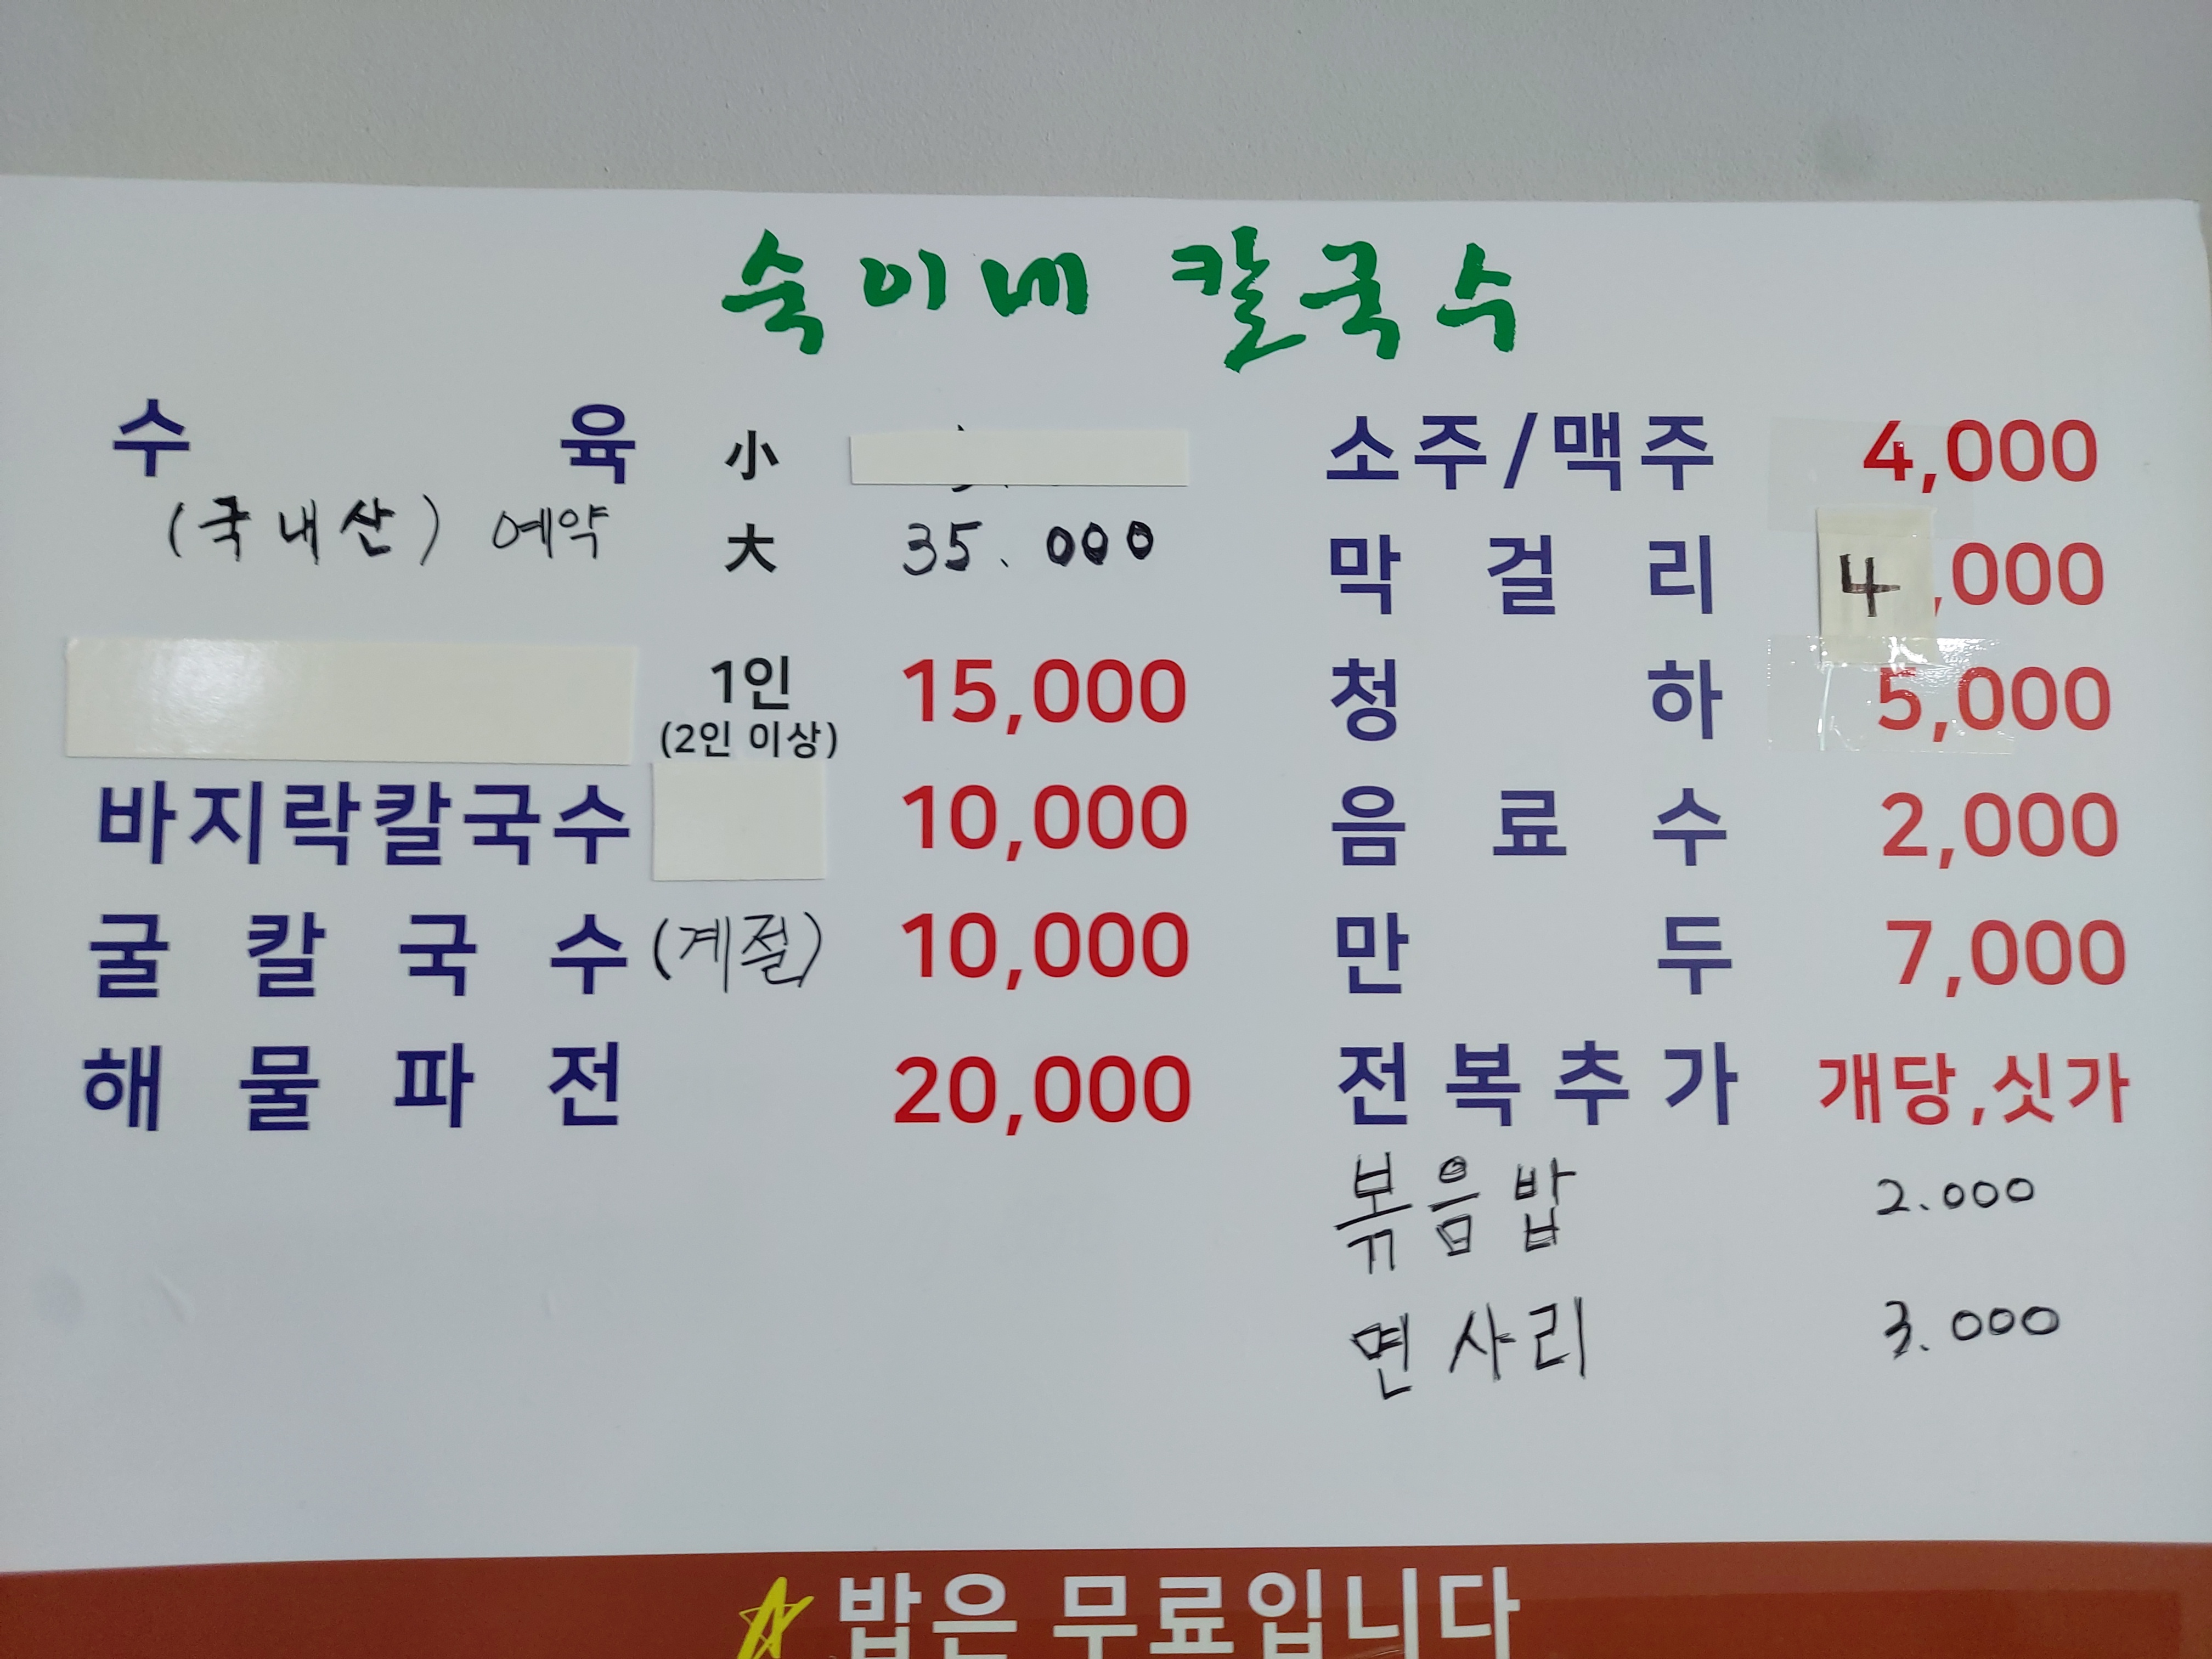 숙이네 칼국수
수육 小
(국내산) 예약 大 35.000
1인 15,000
(2인 이상)
바지락칼국수 10,000
굴칼국수 (계절) 10,000
해물파전 20,000
소주/맥주 4,000
막걸리 4,000
청하 5,000
음료수 2,000
만두 7,000
전복추가 개당,싯가
볶음밥 2.000
면사리 3.000
밥은 무료입니다